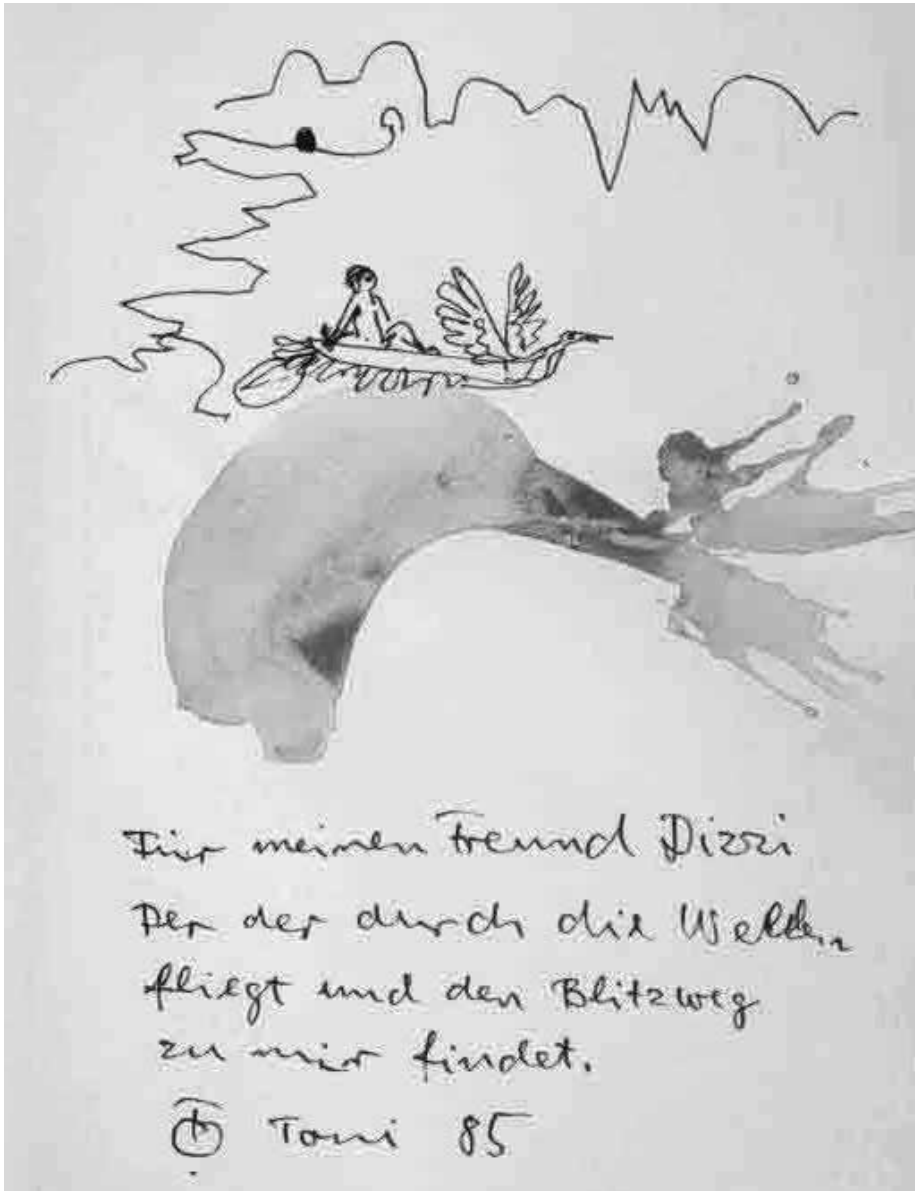 Für meinen Freund Dizzi
Der der durch die
fliegt und den Blitzweg
zu mir findet.
Toni 85